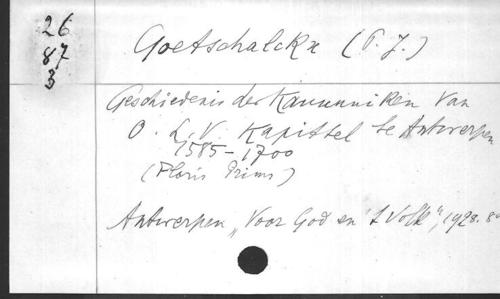 26
87
3
Goetschalckx (P. J.)
Geschiedenis der Kanunniken van
O. L. V. Kapittel te Antwerpen
1585-1700
(Floris Prims)
Antwerpen "Voor God en 't Volk", 1928. 8°